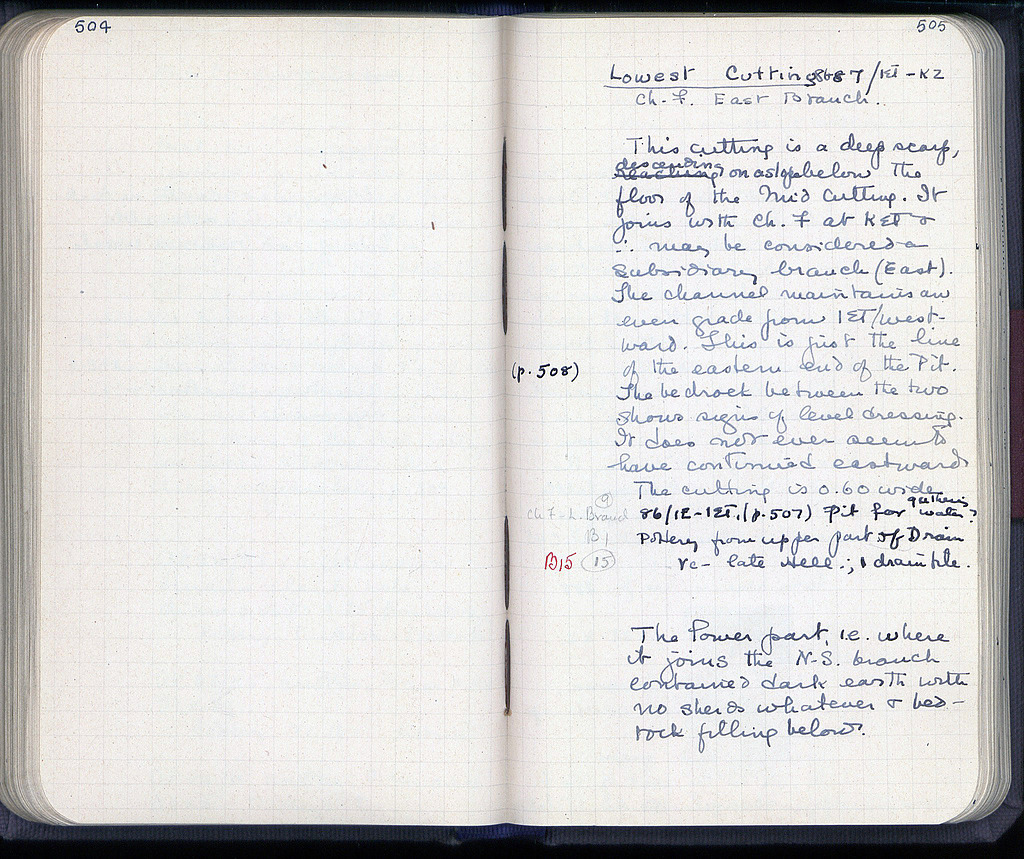 504
505
Lowest Cutting 86-87/IET-KZ
Ch. F. East Branch.
This cutting is a deep scarp,
descending
reaching on a slope below the
floor of the Mid Cutting. It
joins with Ch. F at KET &
∴ may be considered a
subsidiary branch (East).
The channel maintains an
even grade from IET/west-
ward. This is just the line
of the eastern end of the Pit.
(p. 508)
The bedrock between the two
shows signs of level dressing.
It does not ever seem to
have continued eastward
The cutting is 0.60 wide
9
gathering
Ch F - L. Branch
86/IE-IET, (p. 507) Pit for water?
B1
Pottery from upper part of Drain
B15 15
rc - late Hell.; 1 drain tile.
The lower part, i.e. where
it joins the N-S. branch
contained dark earth with
no sherds whatever & bed-
rock filling below.